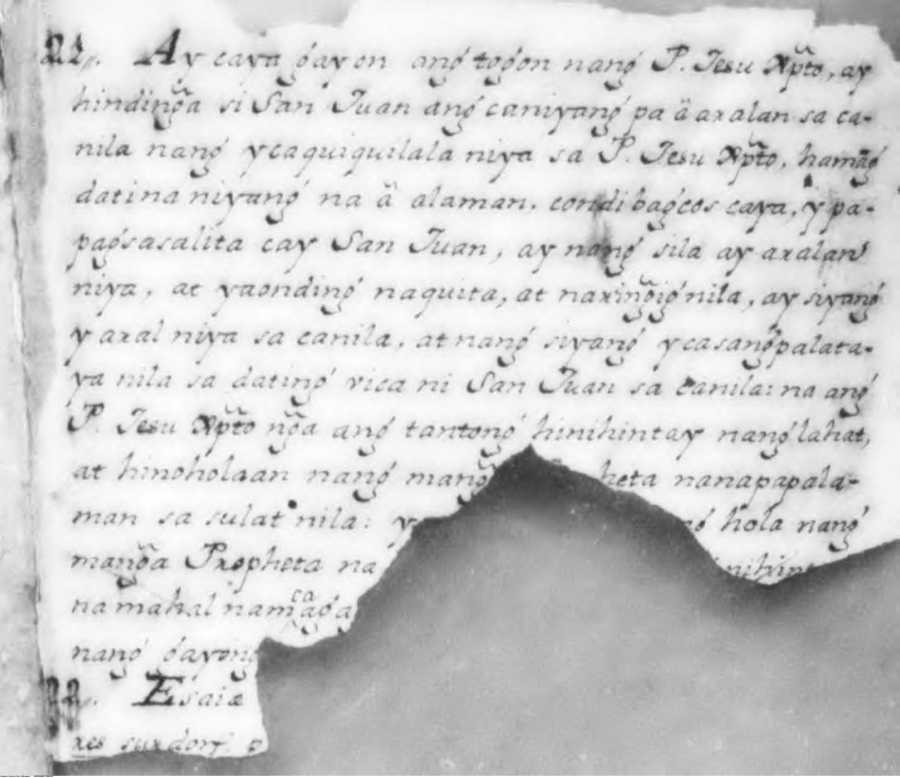 21. Ay caya gayon ang togon nang P. Jesu Xp̃to, ay
hindinga si San Juan ang caniyang pa ä axalan sa ca-
nila nang ycaquiquilala niya sa P. Jesu Xp̃to, hamãg
datina niyang na ä alaman, condi bagcos caya, y pa-
pagsasalita cay San Juan, ay nang sila ay axalan
niya, at yaonding naquita, at naxin̄gig nila, ay siyang
y axal niya sa canila, at nang siyang ycasan̄gpalata-
ya nila sa dating vica ni San Juan sa canila: na ang
P. Jesu Xp̃to n̄ga ang tantong hinihintay nang lahat,
at hinoholaan nang mang heta nanapapala-
man sa sulat nila: y g hola nang
man̄ga Propheta na
na mahal nam̃aga
nang gayong
22. Esaiæ